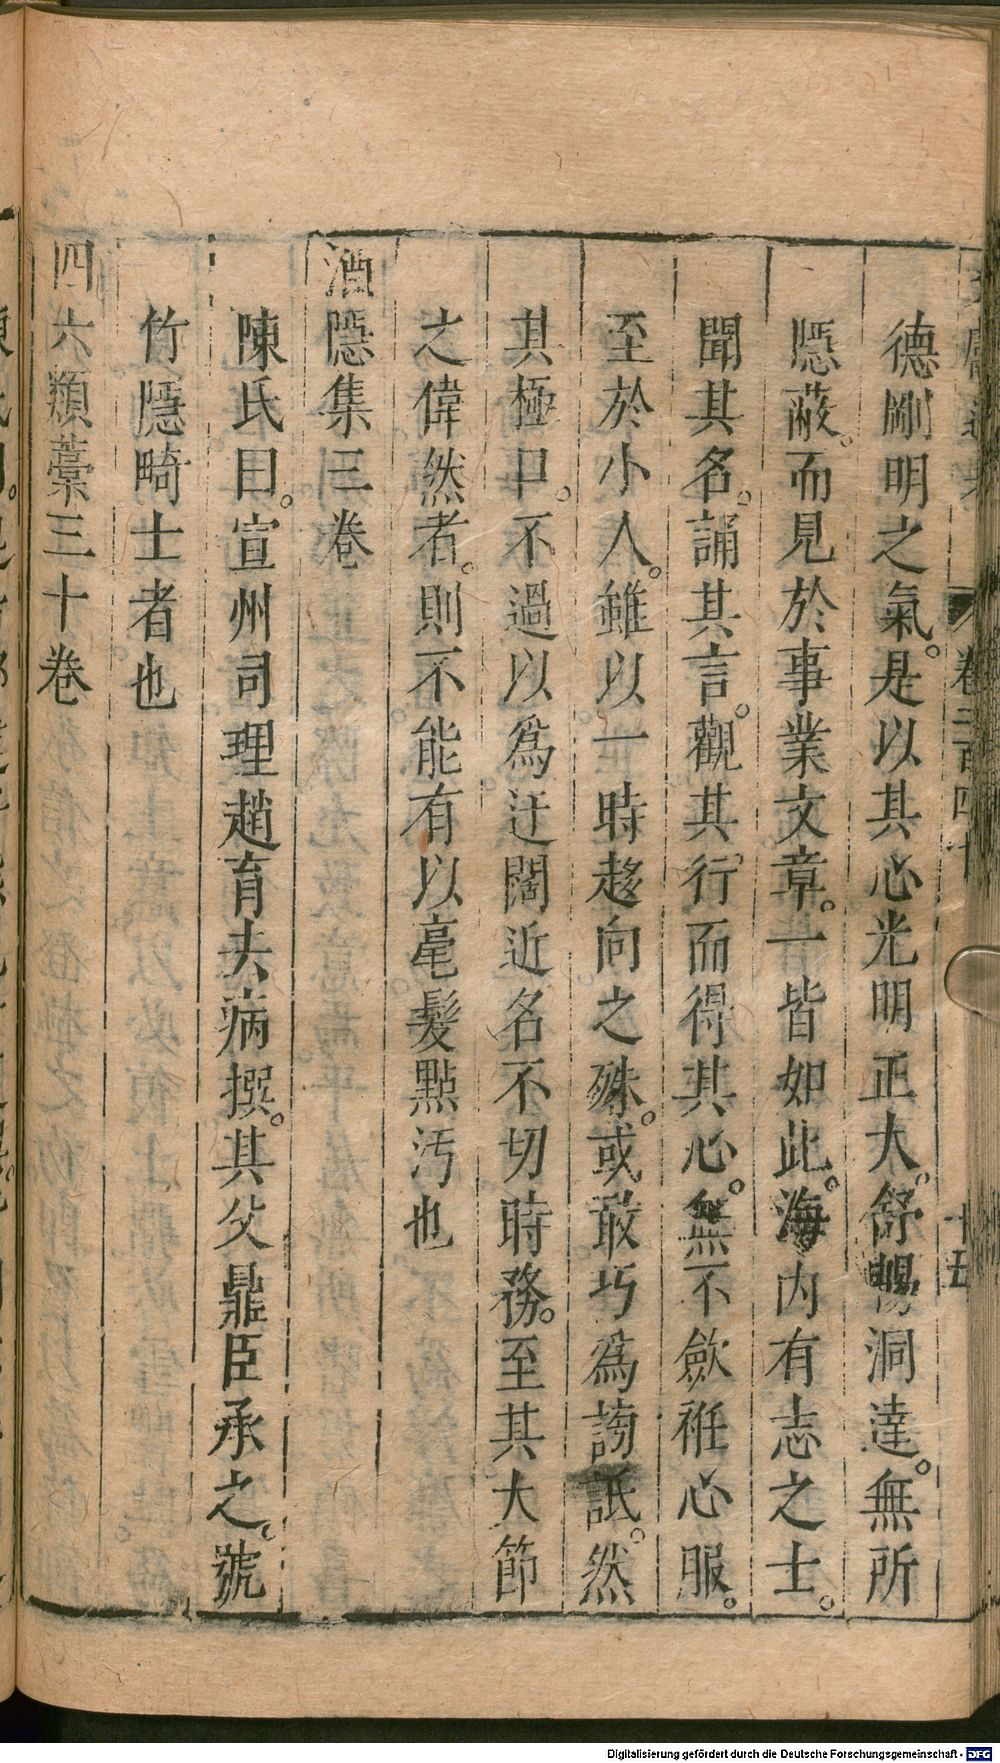 德剛明之氣。是以其心光明正大。舒暢洞達。無所
隱蔽。而見於事業文章。一皆如此。海內有志之士。
聞其名。誦其言。觀其行而得其心。無不歛衽心服。
至於小人。雖以一時趍向之殊。或敢巧為謗詆。然
其極口。不過以為迂闊近名不切時務。至其大節
之偉然者。則不能有以毫髮點汚也
酒隱集三卷
陳氏曰。宣州司理趙育去病撰。其父鼎臣承之。號
竹隱畸士者也
四六類藁三十卷
卷二百四十
十五
Digitalisierung gefördert durch die Deutsche Forschungsgemeinschaft - DFG